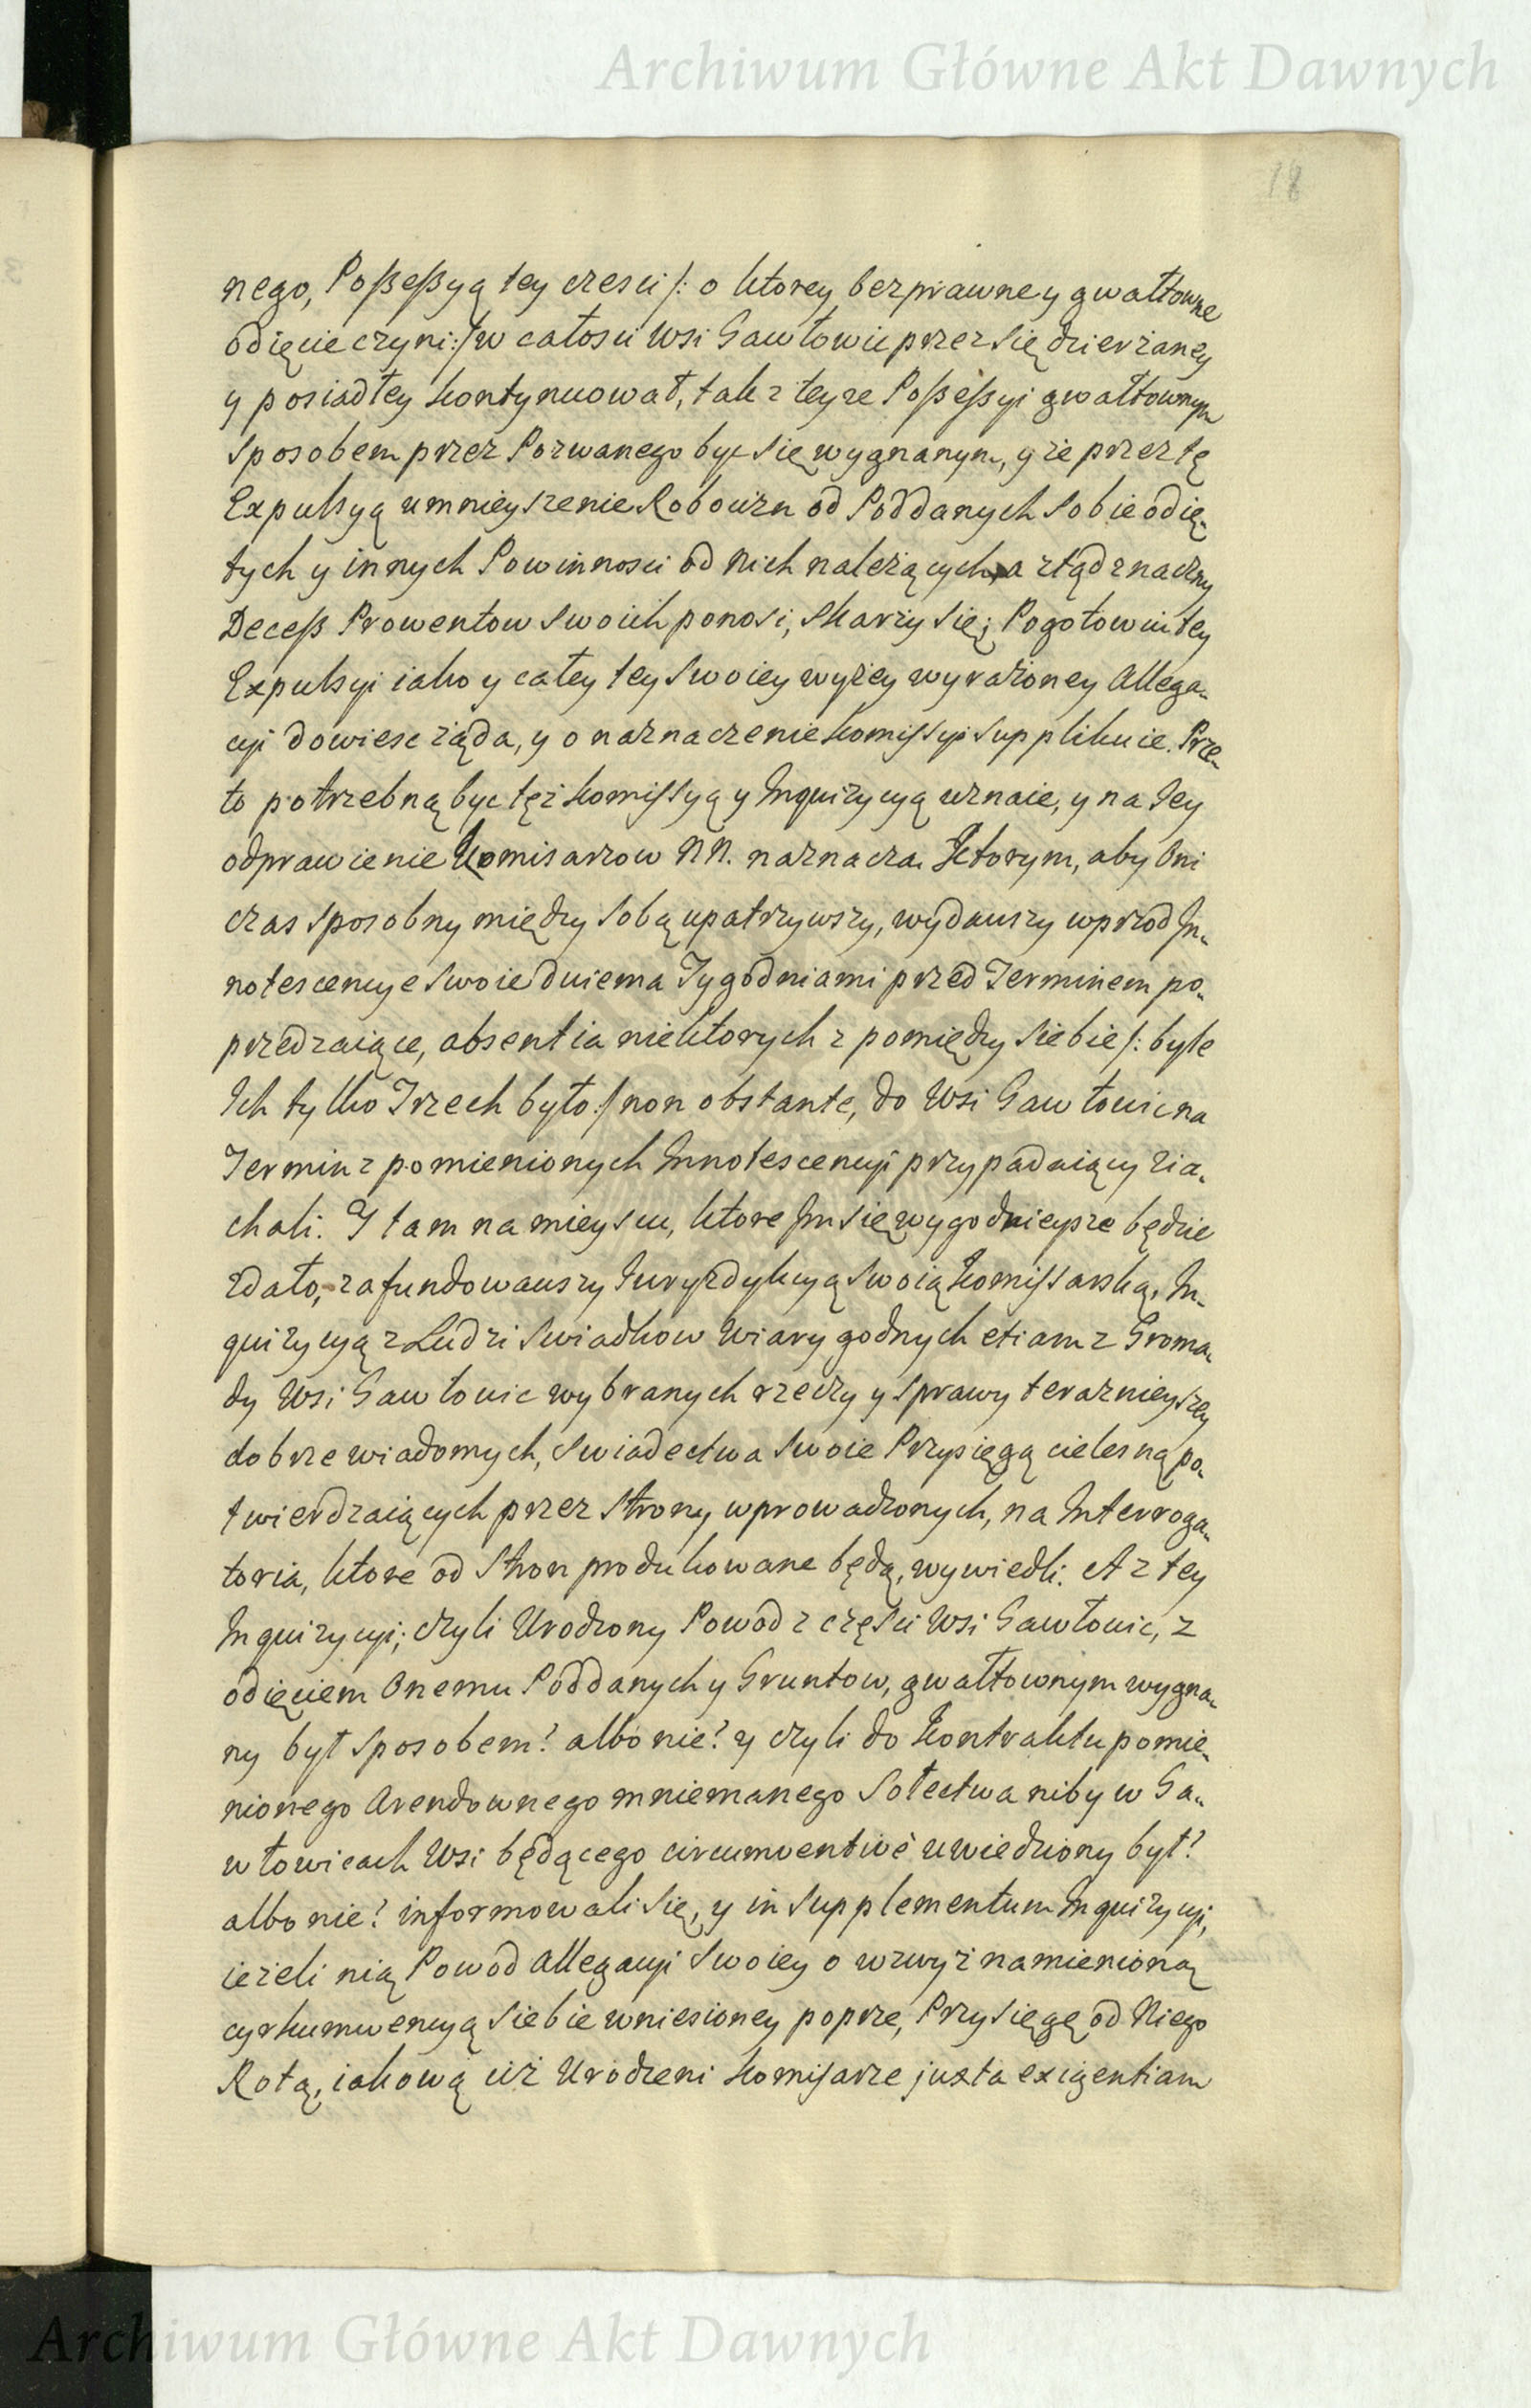 Archiwum Główne Akt Dawnych
18
nego, Poßeßyą tey czesci /: o ktorey bezprawne y gwałtowne
odięcie czyni :/ w całosci Wsi Gawłowic przez się dzierżaney
y posiadłey kontynuował, tak z teyże Poßeßyi gwałtownym
sposobem przez Pozwanego byc się wygnanym, y że przez tę
Expulsyą umnieyszenie Robocizn od Poddanych sobie odię-
tych y innych Powinnosci od nich należących, a ztąd znaczny
Deceß Prowentow swoich ponosi, skarży się; Pogotowiu tey
Expulsyi iako y całey tey swoiey wyżey wyrażoney Allega-
cyi dowiesc żąda, y o naznaczenie Komissyi supplikuie. Prze-
to potrzebną byc tęż Komissyą y Inquizycyą uznaie, y na Jey
odprawienie Komisarzow NN. naznacza. Ktorym, aby Oni
czas sposobny między sobą upatrzywszy, wydawszy wprzod In-
notescencye swoie dwiema Tygodniami przed Terminem po-
przedzaiące, absentia niektorych z pomiędzy siebie /: byle
Ich tylko Trzech było :/ non obstante, do Wsi Gawłowic na
Termin z pomienionych Innotescencyi przypadaiący zia-
chali. Y tam na mieyscu, ktore Im się wygodnieysze będzie
zdało, zafundowawszy Juryzdykcyą swoią Komissarską, In-
quizycyą z Ludzi Swiadkow Wiary godnych etiam z Groma-
dy Wsi Gawłowic wybranych rzeczy y sprawy teraznieyszey
dobrze wiadomych, swiadectwa swoie Przysięgą cielesną po-
twierdzaiących przez strony wprowadzonych, na Interroga-
toria, ktore od Stron produkowane będą, wywiedli. A z tey
Inquizycyi; czyli Urodzony Powod z częsci Wsi Gawłowic, z
odięciem Onemu Poddanych y Gruntow, gwałtownym wygna-
ny był sposobem? albo nie? y czyli do Kontraktu pomie-
nionego Arendownego mniemanego Sołectwa niby w Ga-
włowicach Wsi będącego circumventivè uwiedziony był?
albo nie? informowali się, y in supplementum Inquizycyi,
ieżeli nią Powod Allegacyi swoiey o wzwyż namienioną
cyrkumwencyą siebie wniesioney poprze, Przysięgę od Niego
Rotą, iakową ciż Urodzeni Komisarze juxta exigentiam
Archiwum Główne Akt Dawnych